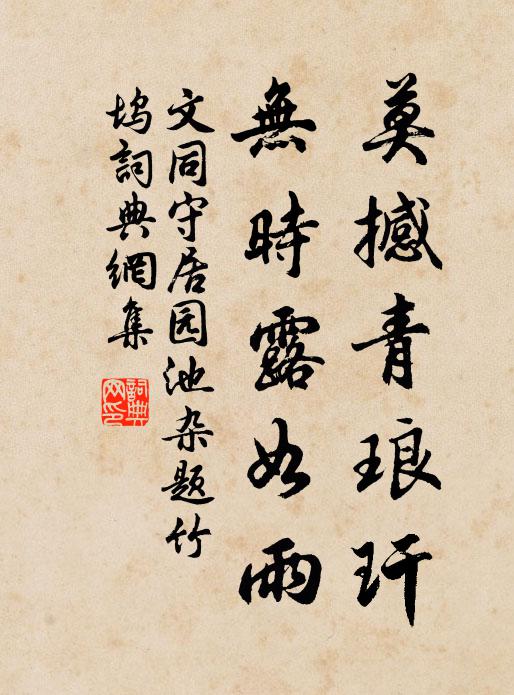 莫撼青琅玕
無時露如雨
文同守居园池杂题竹
坞詞典網集
詞典网印